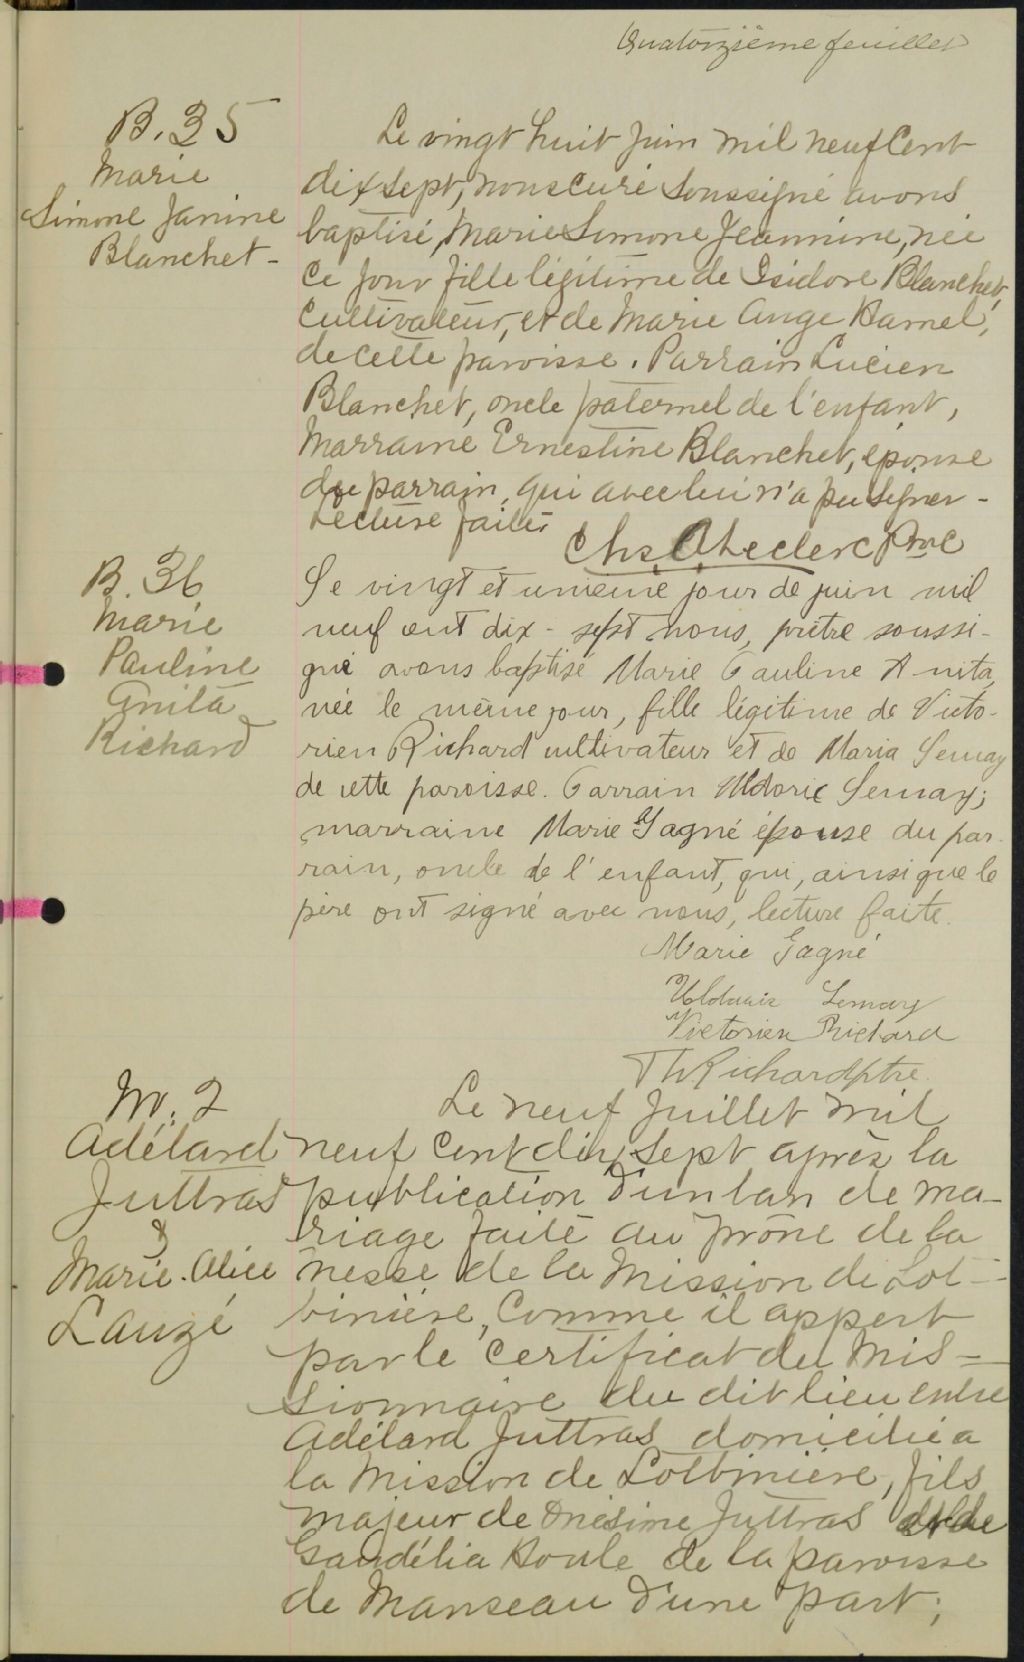 Quatorzième feuillet
B. 35
Marie
Simone Janine
Blanchet -
Le vingt huit juin mil neuf Cent
dix sept, nous curé soussigné avons
baptisé, Marie Simone Jeannine, née
ce jour fille légitime de Isidore Blanchet,
Cultivateur, et de Marie Ange Hamel,
de cette paroisse. Parrain Lucien
Blanchet, oncle paternel de l'enfant,
Marraine Ernestine Blanchet, épouse
du parrain, qui avec lui n'a pu signer -
Lecture faite
Chs. O Leclerc Ptre
B. 36
Marie
Pauline
Anita
Richard
Le vingt et unième jour de juin mil
neuf cent dix - sept nous, prêtre soussi-
gné avons baptisé Marie Pauline Anita,
née le même jour, fille légitime de Victo-
rien Richard cultivateur et de Maria Lemay
de cette paroisse. Parrain Uldoric Lemay;
marraine Marie Gagné épouse du par-
rain, oncle de l'enfant, qui, ainsi que le
père ont signé avec nous, lecture faite.
Marie Gagné
Uldoric Lemay
Victorien Richard
Th Richard ptre.
M. 2
Adélard
Juttras
&
Marie. Alice
Lauzé
Le neuf Juillet mil
neuf Cent dix sept après la
publication d'un ban de ma-
riage faite au prône de la
messe de la Mission de Lot-
binière, Comme il appert
par le certificat du Mis=
sionnaire du dit lieu entre
Adélard Juttras domicilié a
la Mission de Lotbinière, fils
majeur de Onésime Juttras et de
Gaudélia Houle de la paroisse
de Manseau d'une part;